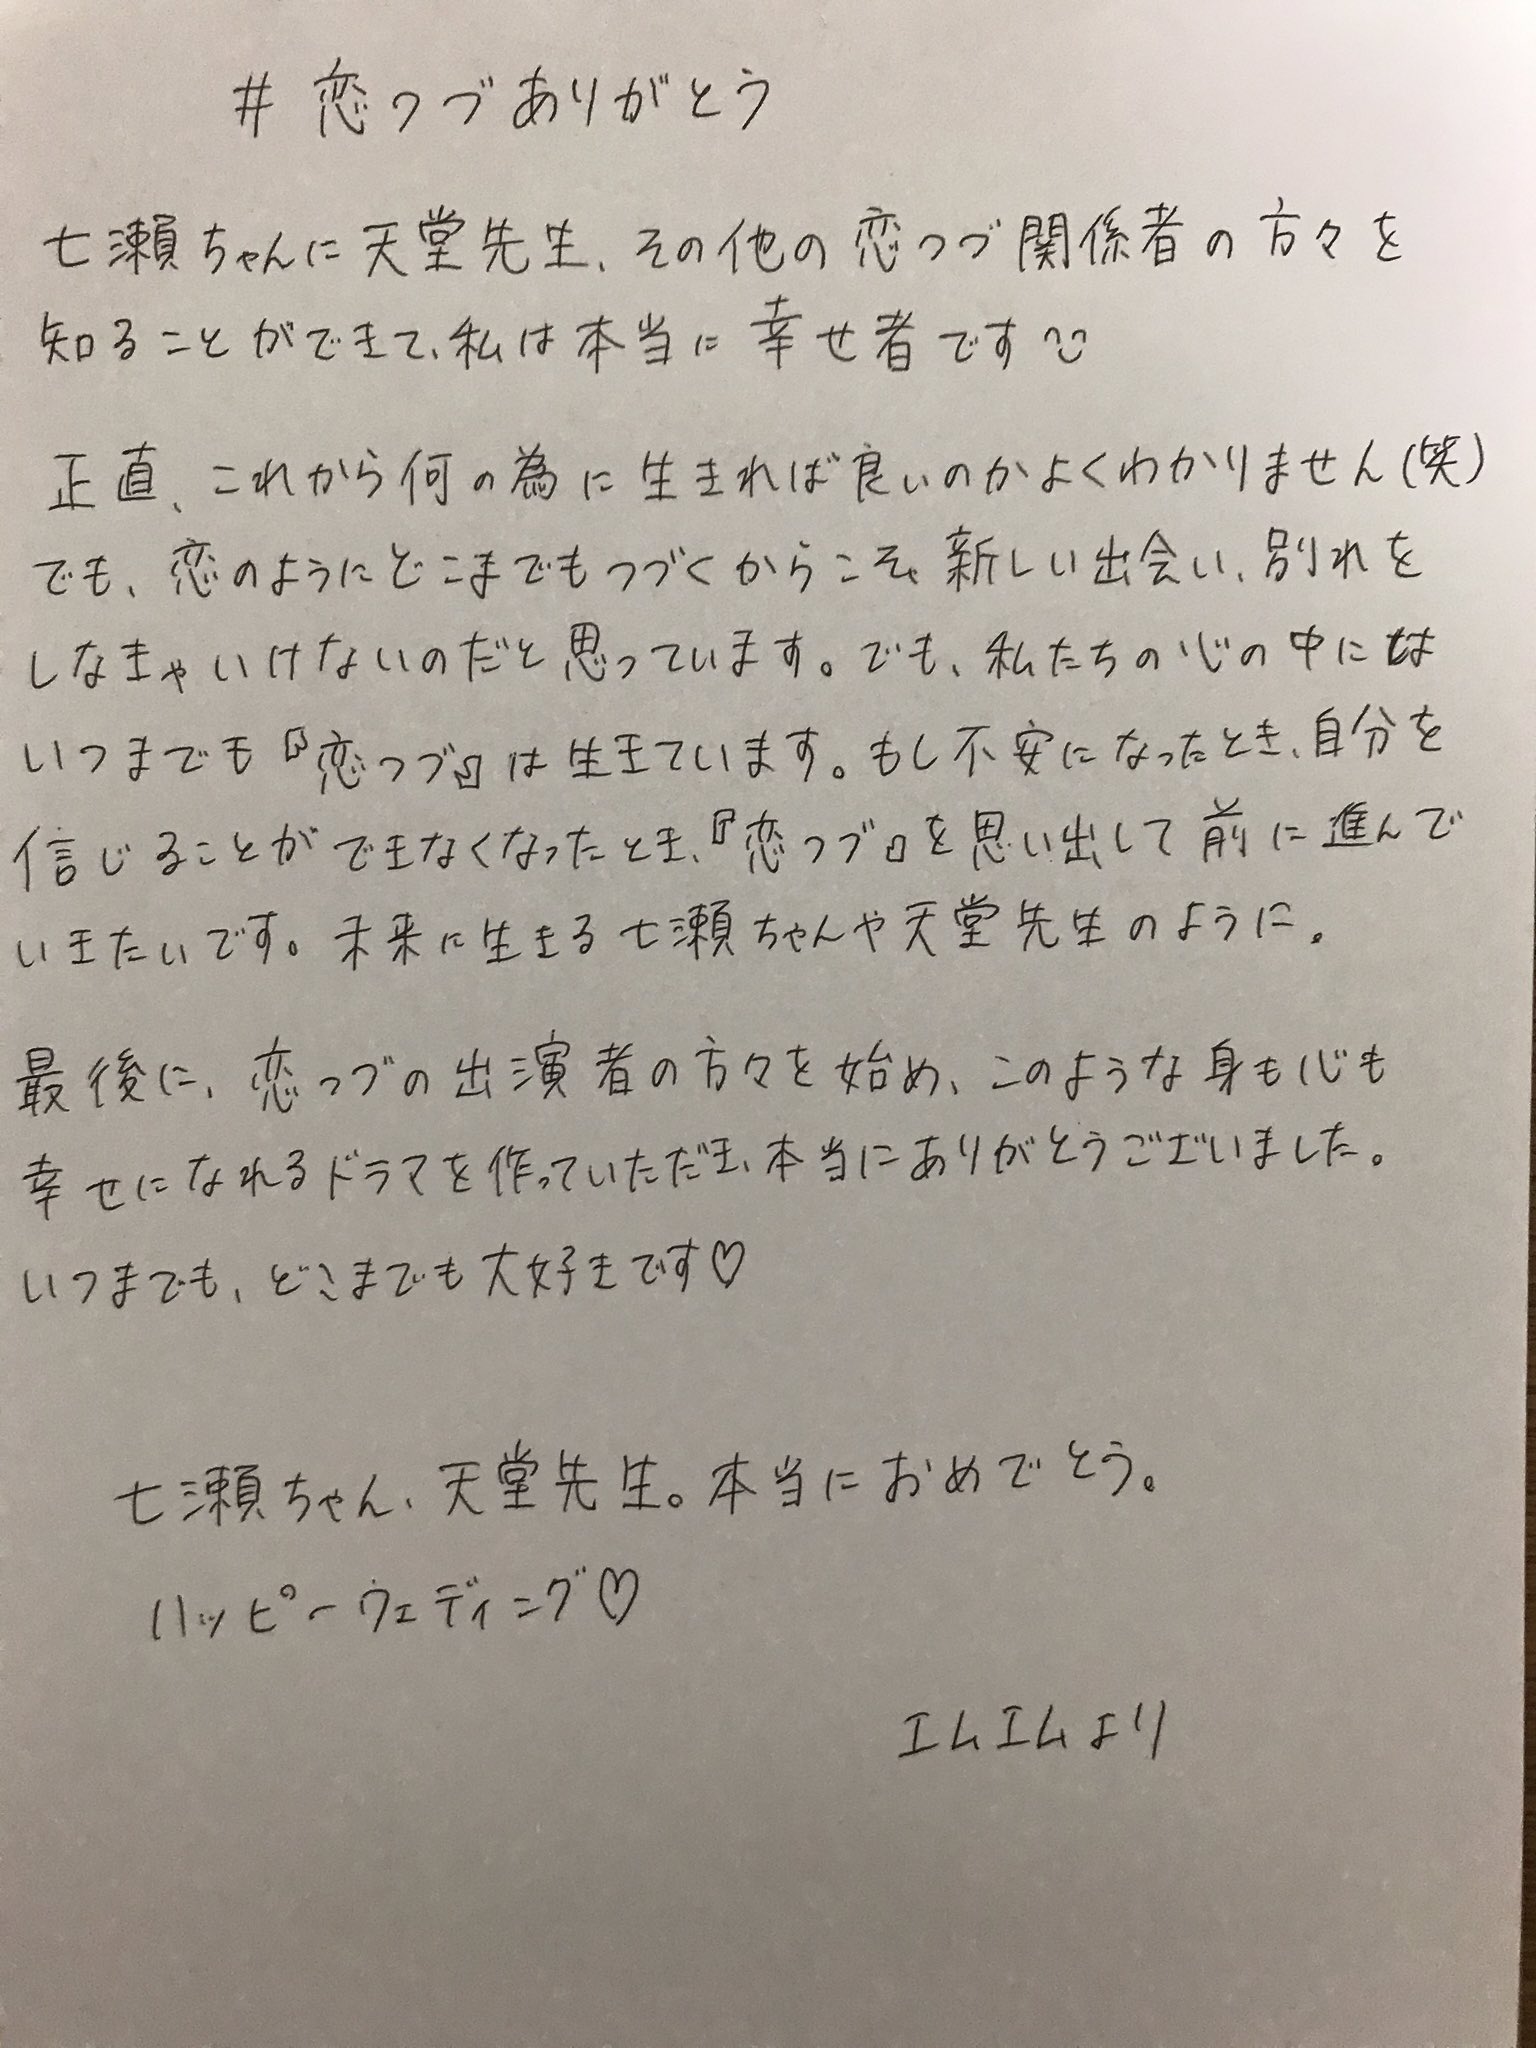 #恋つづありがとう
七瀬ちゃんに天堂先生、その他の恋つづ関係者の方々を
知ることができて、私は本当に幸せ者です
正直、これから何の為に生きれば良いのかよくわかりません(笑)
でも、恋のようにどこまでもつづくからこそ、新しい出会い、別れを
しなきゃいけないのだと思っています。でも、私たちの心の中には
いつまでも『恋つづ』は生きています。もし不安になったとき、自分を
信じることができなくなったとき、『恋つづ』を思い出して前に進んで
いきたいです。未来に生きる七瀬ちゃんや天堂先生のように。
最後に、恋つづの出演者の方々を始め、このような身も心も
幸せになれるドラマを作っていただき、本当にありがとうございました。
いつまでも、どこまでも大好きです♡
七瀬ちゃん、天堂先生。本当におめでとう。
ハッピーウェディング♡
エムエムより